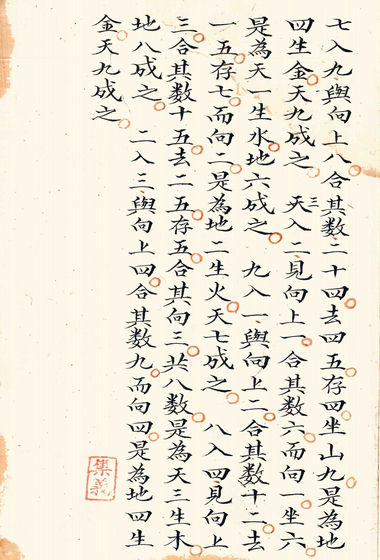 七入九與向上八合其數二十四去四五存四坐山九是為地
四生金天九成之 天三入二見向上一合其數六而向一坐六
是為天一生水地六成之 九入一與向上二合其數十二去
一五存七而向二是為地二生火天七成之 八入四見向上
三合其数十五去二五存五合其向三共八數是為天三生木
地八成之 二入三與向上四合其數九而向四是為地四生
金天九成之
集義